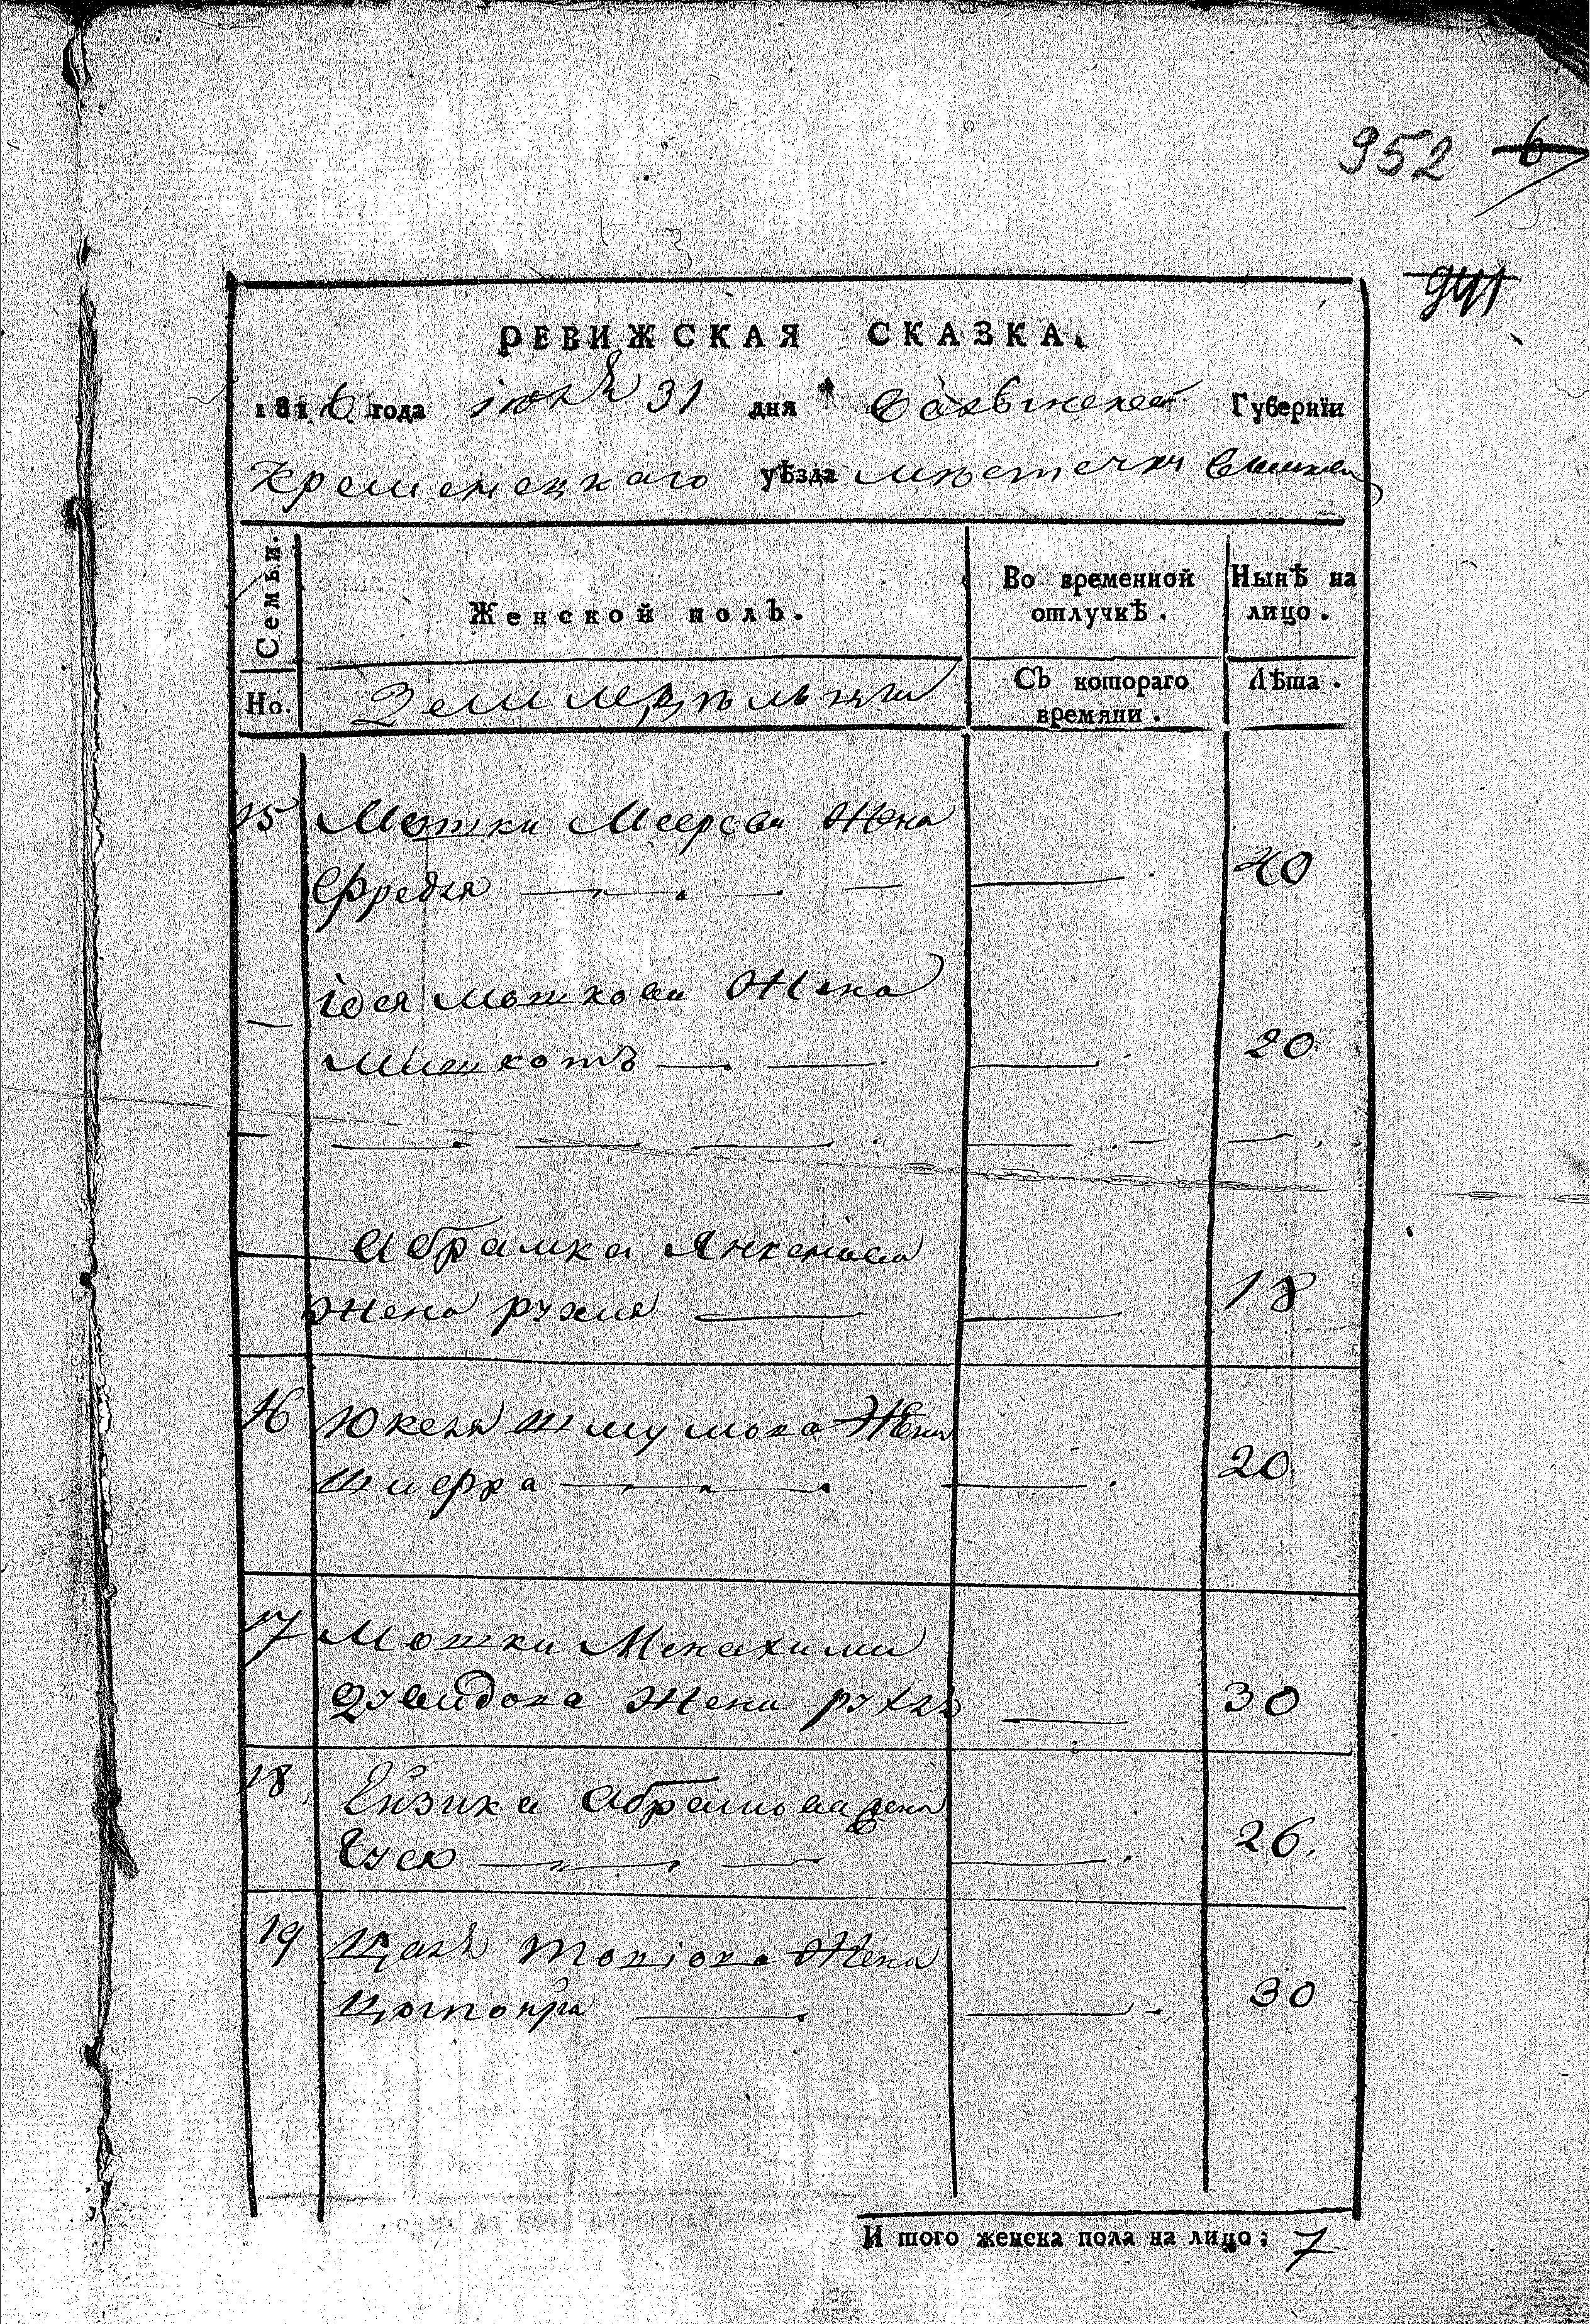 952 6
941
РЕВИЖСКАЯ СКАЗКА.
1816 года июля 31 дня Волынской Губернїи
Кременецкаго уѣзда мѣстечки
Семьи.
Женской полъ.
Во временной отлучкѣ.
Нынѣ на лицо.
Но.
Земледѣльцы
Съ котораго времяни.
Лѣта.
15 Мошки Меерова Жена
Фрейдя — 40
— Мошкова Жена
— 20
Абрамка Янкелева
Жена рухля — 18
16 Юкеля Шмулова Жена
Шифра — 20
17 Мошки Менахима
Давидова Жена рухля — 30
18 Ейзика Абрамова жена
— 26.
19 Жена
— 30
И того женска пола на лицо: 7